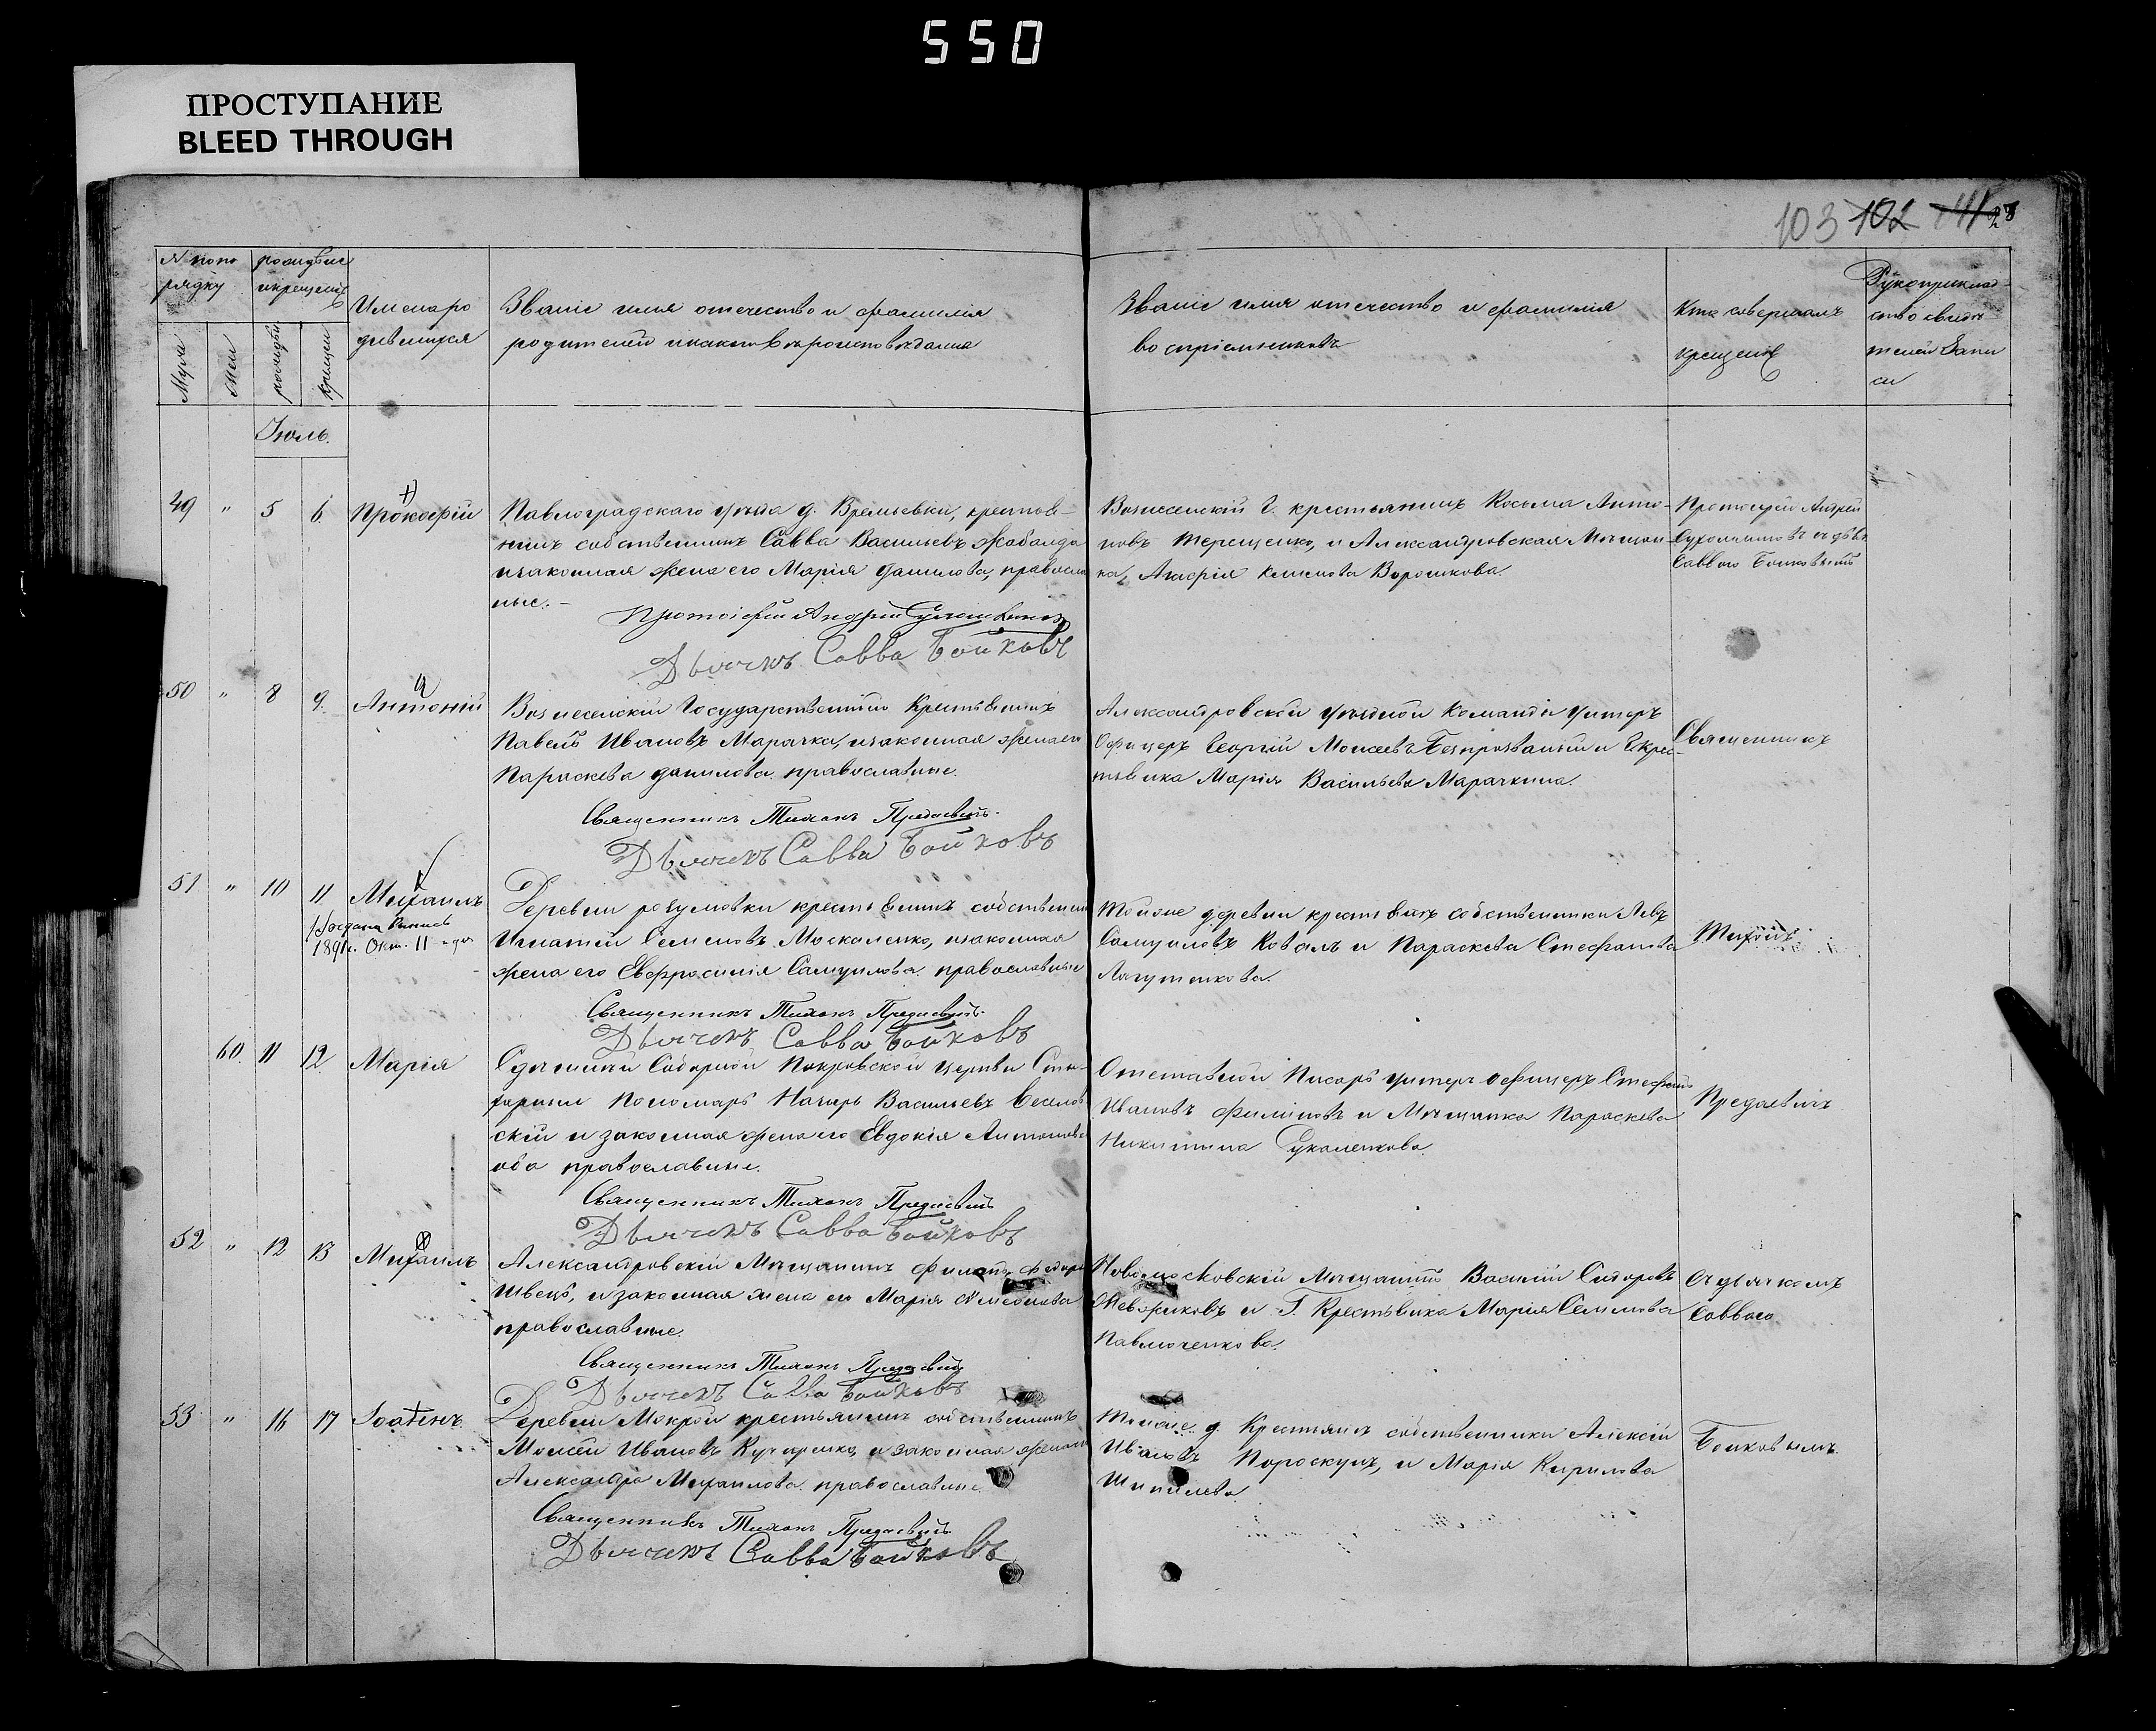 550
ПРОСТУПАНИЕ
BLEED THROUGH
103 102 141 28
№ по по рядку
рождение и крещение
Мужи
Жен
рожден
крещен
Имена ро дившихся
Званіе имя отечество и фамилія
родителей и какова вѣроисповѣданія
Званіе имя отечество и фамилія
воспріемниковъ
Кто совершалъ
крещеніе
Рукоприклад-
ство свидѣ
телей Запи
си
Іюль.
49 " 5 6. Прокофій
Павлоградскаго уѣзда д. Времьевки, крестья-
нинъ собственникъ Савва Васильевъ
и законная жена его Марія Данилова, правосла
ные. –
Протоіерей Андрей
Дьячекъ Савва Бойковъ
Вознесенскій Г. крестьянинъ Косьма Анто-
новъ Терещенко, и Александровская Мѣщан-
ка, Агафія Климова Ворошкова.
Протоіерей Андрей
съ дьяч
Саввою Бойковымъ
50 " 8 9. Антоній
Вознесенскій Государственный Крестьянинъ
Павелъ Ивановъ Марачка, и законная жена его
Параскева Данилова православные.
Священникъ Тихонъ Предаевичъ.
Дьячекъ Савва Бойковъ
Александровской уѣздной Команды унтеръ
Офицеръ Георгій Моисеевъ Безпрозванный и Г. крес-
тьянка Марія Васильева Марачкина.
Священникъ
51 " 10 11 Михаилъ
1891г. Окт. 11 дня
Деревни розумовки крестьянинъ собственни
Игнатій Семеновъ Москаленко, и законная
жена его Евфросинія Самуилова православные
Священникъ Тихонъ Предаевичъ.
Дьячекъ Савва Бойковъ
Тойже деревни крестьянъ собственники Левъ
Самуиловъ Коваль и Параскева Стефанова
Лагутенкова.
Тихонъ
60. 11 12. Марія
Соборной Покровской церкви
пономарь Назаръ Васильевъ Веселов
скій и законная жена его Евдокія Антонова
оба православные.
Священникъ Тихонъ Предаевичъ
Дьячекъ Савва Бойковъ
Отставной Писарь унтеръ офицеръ Стефанъ
Ивановъ Филиповъ и Мѣщанка Параскева
Никитина
Предаевичъ
52 " 12 13 Михаилъ
Александровскій Мѣщанинъ
Швецъ, и законная жена его Марія Симеонова
православные.
Священникъ Тихонъ Предаевичъ
Дьячекъ Савва Бойковъ
Новомосковскій Мѣщанинъ Василій Сидоровъ
и Г. Крестьянка Марія Семенова
Павлюченкова.
Съ дьячкомъ
Саввою
53 " 16 17 Іоаннъ
Деревни Мокрой крестьянинъ собственникъ
Моисей Ивановъ Кучеренко, и законная жена его
Александра Михаилова православные
Священникъ Тихонъ Предаевичъ.
Дьячекъ Савва Бойковъ
Тойже д. Крестьянъ собственники Алексій
Ивановъ Пороскунъ, и Марія Кирилова
Шипилева.
Бойковымъ.